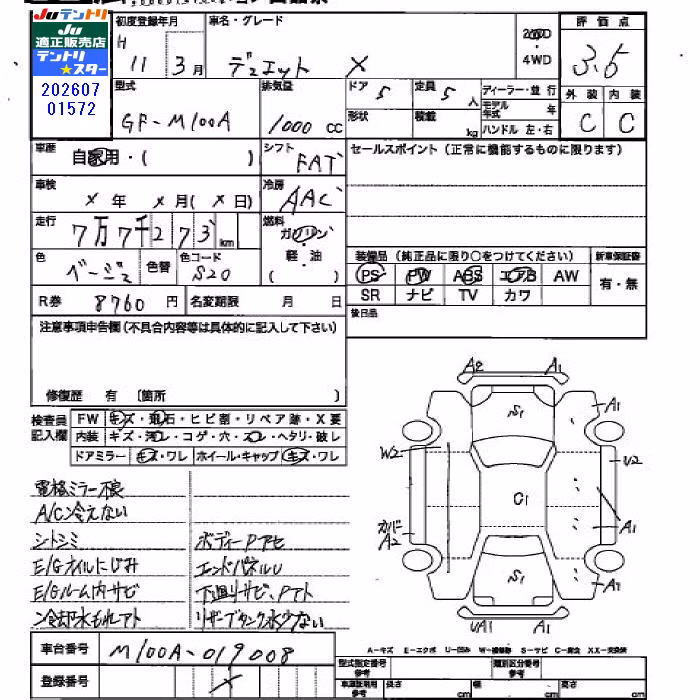 Juテントリ
Ju
適正販売店
テントリ
★スター
202607
01572
初度登録年月
H 11 3月
車名・グレード
デュエット X
4WD
評価点
3.5
型式
GF-M100A
排気量
1000 CC
ドア 5
定員 5 人
形状
積載 kg
ディーラー・並行
モデル年式 年
ハンドル 左・右
外装 内装
C C
車歴 自家用・( )
シフト FAT
セールスポイント(正常に機能するものに限ります)
車検 X年 X月(X日)
冷房 AAC
走行 7万7千273km
燃料 ガソリン
軽・油
( )
色 ベージュ 色替
色コード S20
装備品(純正品に限り○をつけてください)
新車保証書
PS PW ABS エアB AW
有・無
SR ナビ TV カワ
R券 8760円
名変期限 月 日
後日品
注意事項申告欄(不具合内容等は具体的に記入して下さい)
修復歴 有 〔箇所 〕
検査員
記入欄
FW キズ・飛石・ヒビ割・リペア跡・X要
内装 キズ・汚レ・コゲ・穴・スレ・ヘタリ・破レ
ドアミラー キズ・ワレ ホイール・キャップ キズ・ワレ
電格ミラー不良
A/C冷えない
シトシミ
ボディーPアセ
E/Gオイルにじみ
エンドパネルU
E/Gルーム内サビ
下廻りサビ、Pアト
冷却水もれアト
リザーブタンク水少ない
A2 A1
S1
A1
W2
U2
C1
カバー
A2
A1
S1
A1
UA1 A1
車台番号 M100A-019008
登録番号 X
A-キズ E-エクボ U-凹み W-補修跡 S-サビ C-腐食 XX-交換済
型式指定番号
類別区分番号
車庫証明用参考
長さ cm
幅 cm
高さ cm